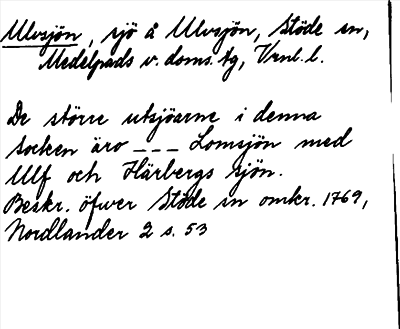 Ulvsjön, sjö å Ulvsjön, Stöde sn,
Medelpads v. doms. tg, Vrnl. l.
De större utsjöarne i denna
socken äro _ _ _ Lomsjön med
Ulf och Härbergs sjön.
Beskr. öfwer Stöde sn omkr. 1769,
Nordlander 2 s. 53